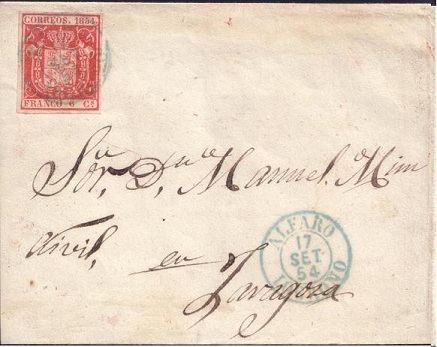 CORREOS. 1854
FRANCO 6 Cs
Sor. Dn. Manuel
en
Zaragoza
ALFARO
17
SET
54